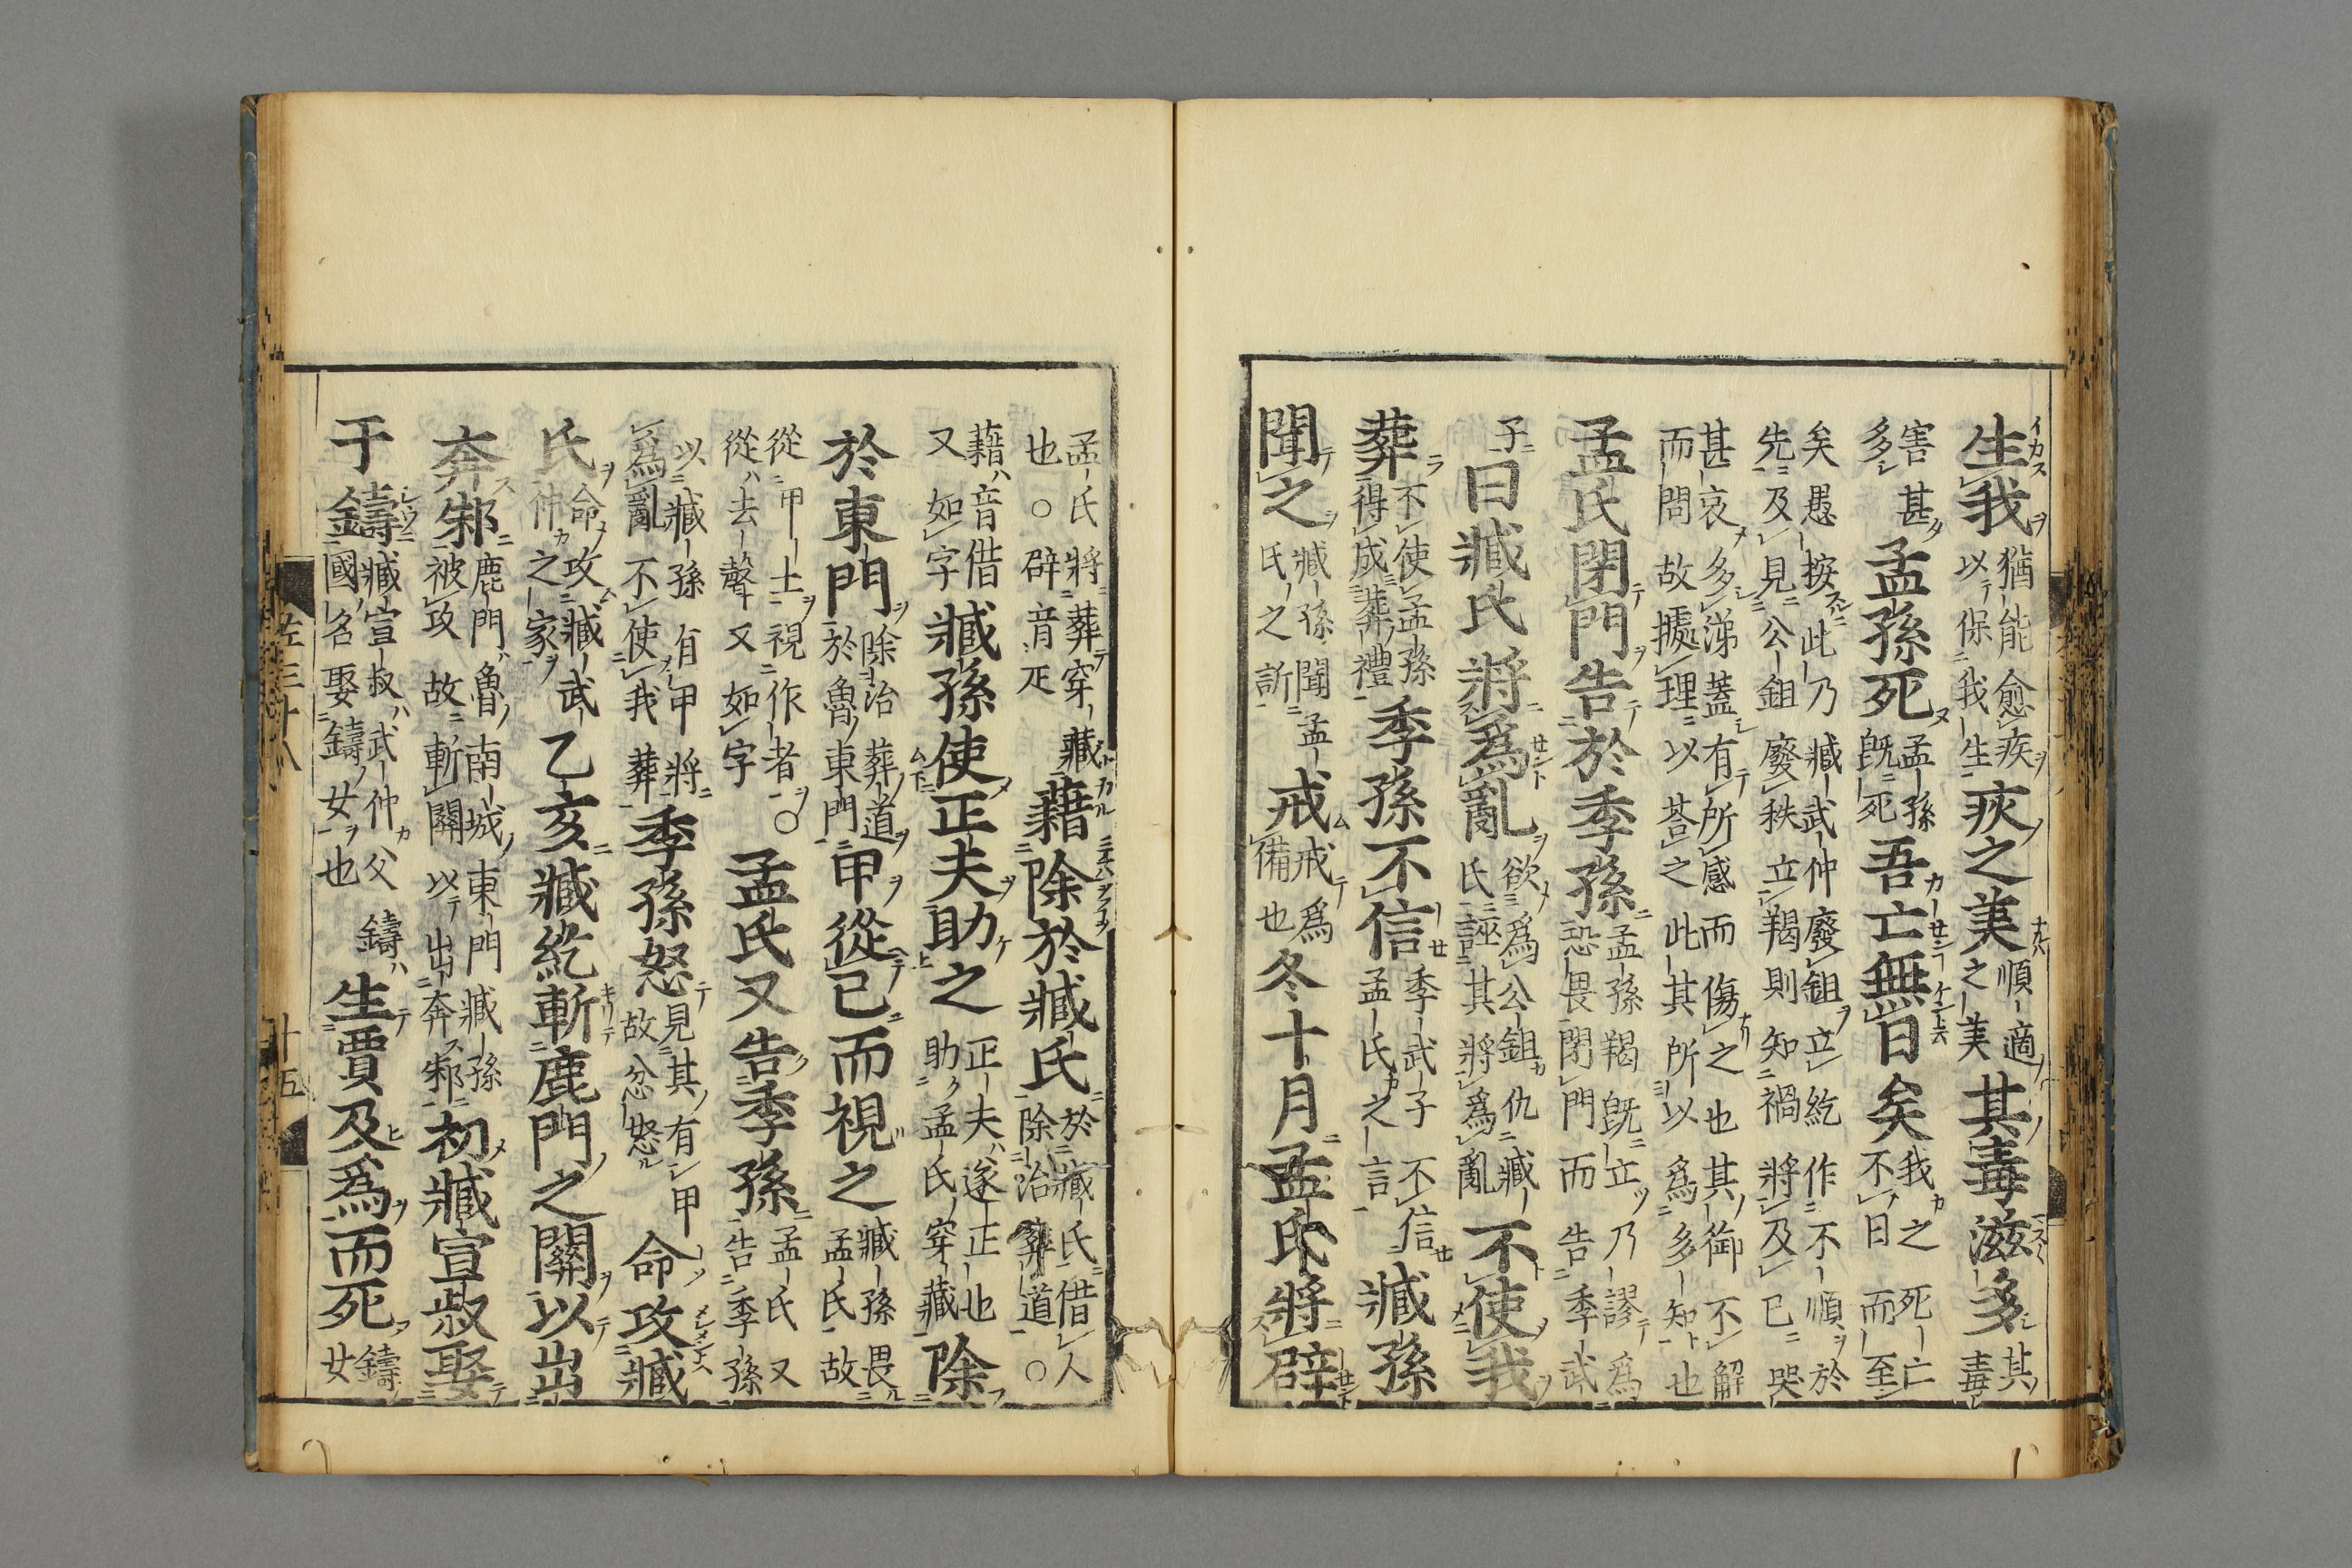 生我猶能愈疾以保我生疢之美順適之美其毒滋多其毒
害甚多孟孫死孟孫既死吾亡無日矣我之死亡不日而至
矣愚按此乃臧武仲廢鉏立紇作不順於先及見公鉏廢秩立羯則知禍將及己哭
甚哀多涕蓋有所感而傷之也其御不解而問故據理以荅之此其所以為多知也
孟氏閉門告於季孫孟孫羯既立乃謬為恐畏閉門而告季武
子曰臧氏將為亂欲為公鉏仇臧氏誣其將為亂不使我
葬不使孟孫得成葬禮季孫不信季武子不信孟氏之言臧孫
聞之臧孫聞孟氏之訴戒戒為備也冬十月孟氏將辟
孟氏將葬穿藏也○辟音疋藉除於臧氏於臧氏借人除治葬道○
藉音借又如字臧孫使正夫助之正夫遂正也助孟氏穿藏除
於東門除治葬道於魯東門甲從己而視之臧孫畏孟氏故
從甲士視作者○從去聲又如字孟氏又告季孫孟氏又告季孫
以臧孫有甲將為亂不使我葬季孫怒見其有甲故忿怒命攻臧
氏命攻臧武仲之家乙亥臧紇斬鹿門之關以出
奔邾鹿門魯南城東門臧孫被攻故斬關以出奔邾初臧宣叔娶
于鑄臧宣叔武仲父鑄國名娶鑄女也生賈及為而死鑄女
左三十八 十五